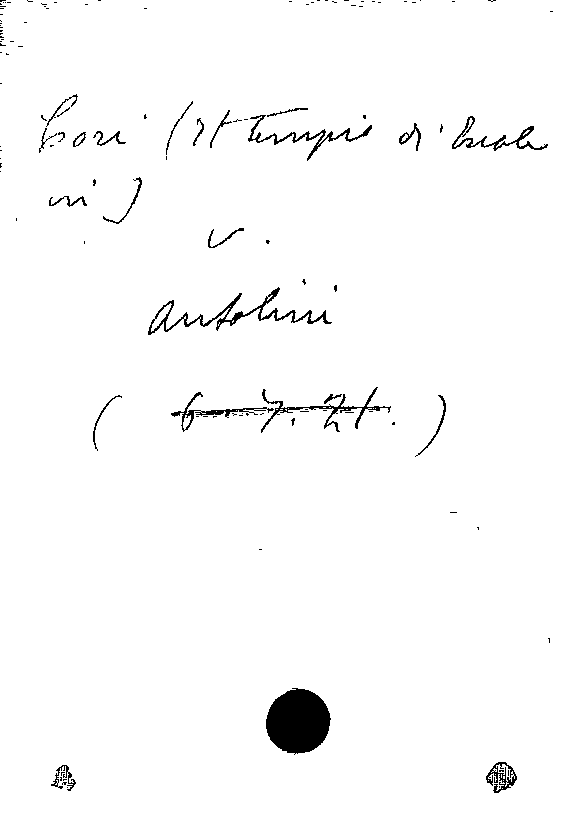 Cori (Il tempio di Ercole
in)
v.
Antolini
(6. 7. 21.)